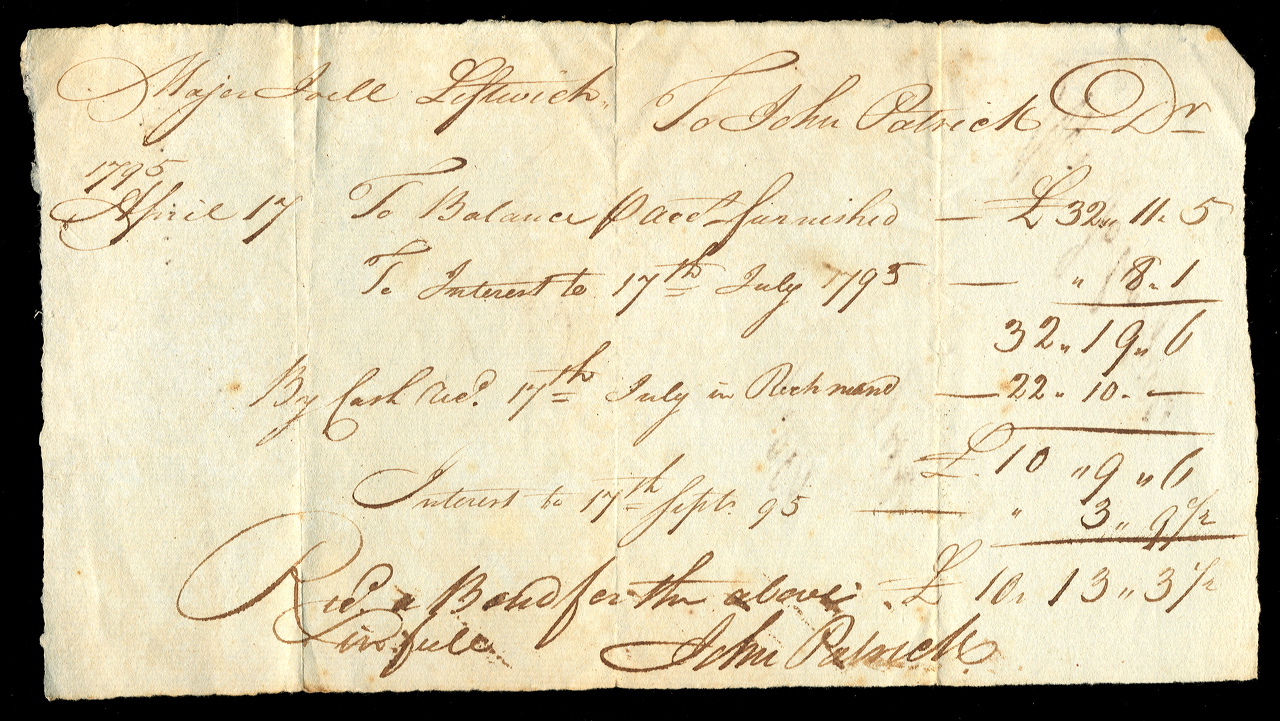 Major Joell Leftwich, To John Patrick Dr
1795
April 17 To Balance ℘ Acct furnished — £ 32 „ 11 „ 5
To Interest to 17th July 1795 — „ 8 „ 1
32 „ 19 „ 6
By Cash Recd. 17th July in Richmond — 22 „ 10 „ —
£ 10 „ 9 „ 6
Interest to 17th Septr. 95 — „ 3 „ 9 1/2
Recd. a Bond for the above £ 10 „ 13 „ 3 1/2
in full John Patrick